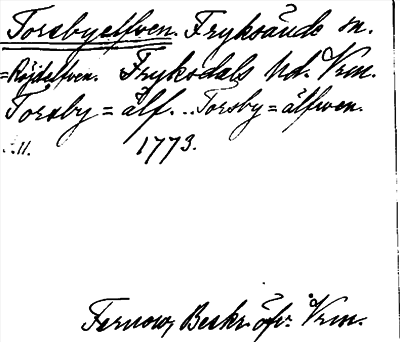 Torsbyelfven. Fryksände sn.
=Röjdelfven. Fryksdals hd. Vrm.
Torsby=älf. .. Torsby=älfwen.
s. 11. 1773.
Fernow, Beskr. öfv. Vrm.